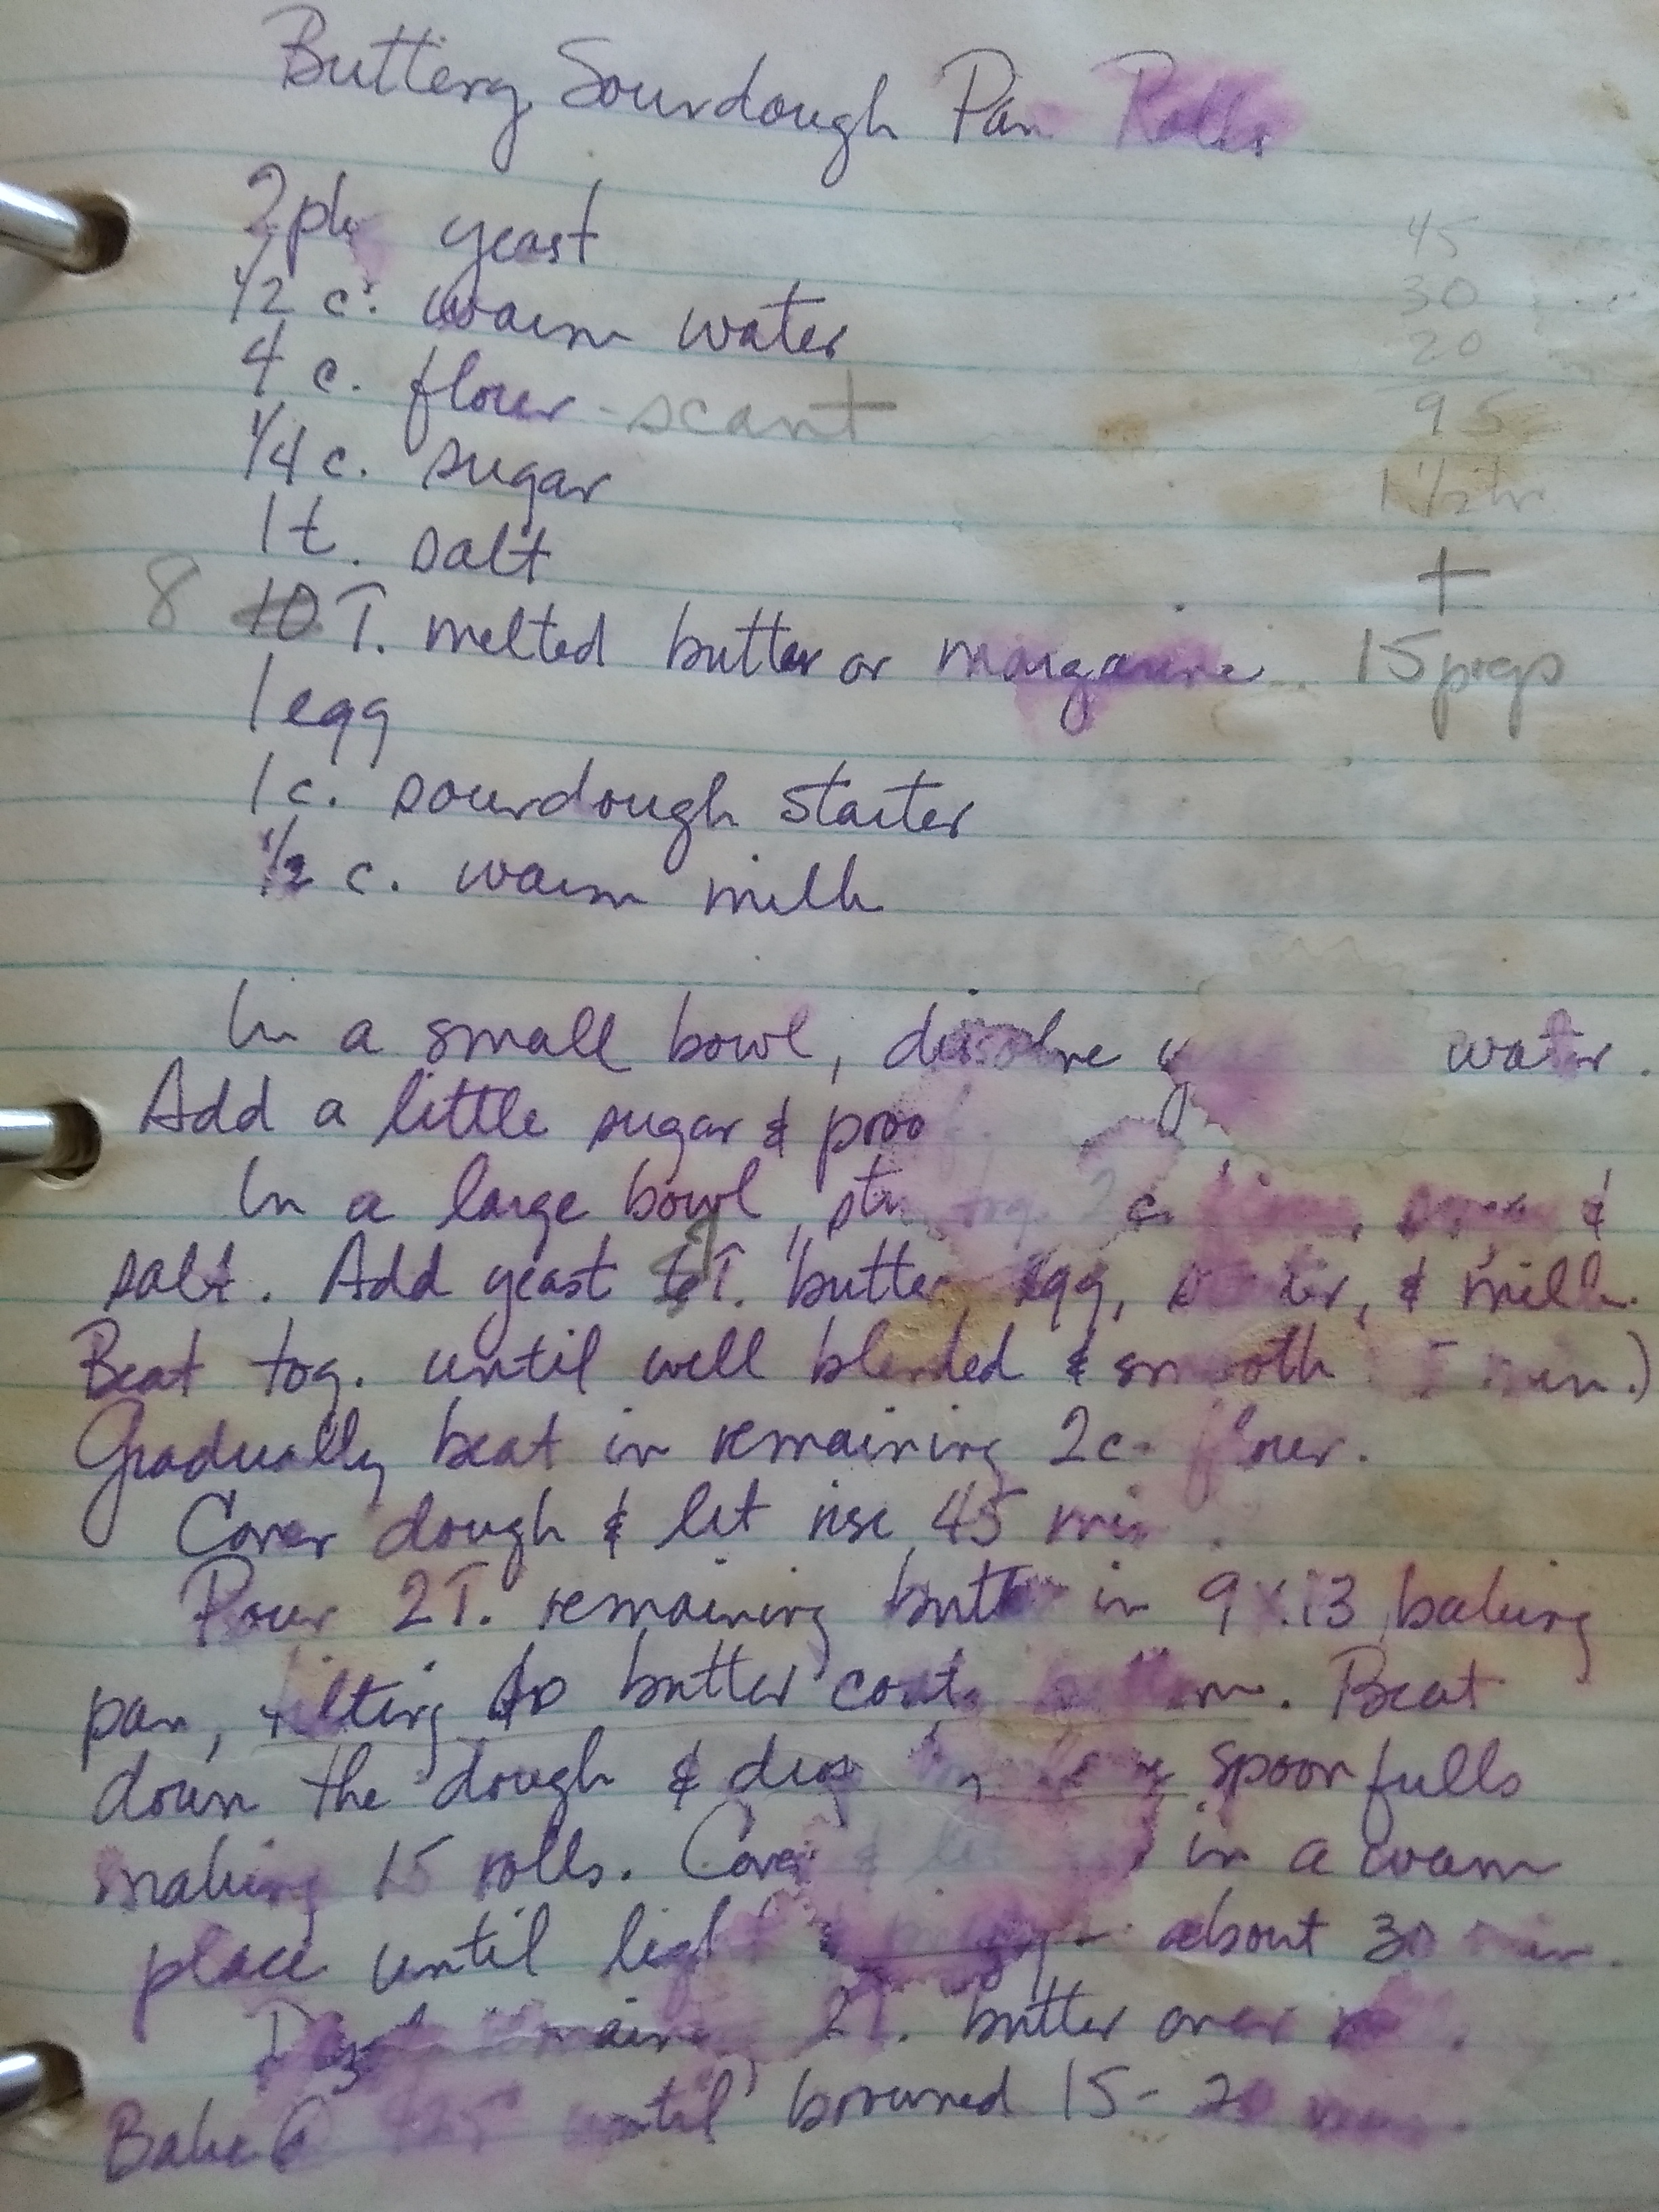 Buttery Sourdough Pan Rolls
2 pk yeast
1/2 c. warm water
4 c. flour - scant
1/4 c. sugar
1 t. salt
8 10 T. melted butter or margarine
1 egg
1 c. sourdough starter
1/2 c. warm milk
45
30
20
95
1 1/2 hr
+
15 prep
In a small bowl, dissolve water.
Add a little sugar & proof.
In a large bowl, tog. 2 c. &
salt. Add yeast T. butter, egg, & milk.
Beat tog. until well blended & smooth min.)
Gradually beat in remaining 2 c. flour.
Cover dough & let rise 45 min.
Pour 2 T. remaining butter in 9 x 13 baking
pan, tilting so butter coats bottom. Beat
down the dough & drop spoonfulls
making 15 rolls. Cover & let in a warm
place until light about 30 min.
2 T. butter over
Bake @ until browned 15-20 min.